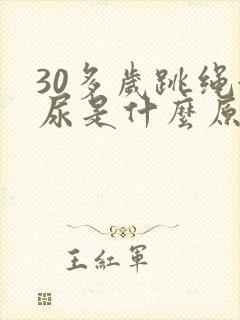 30多歲跳绳
尿是什麼原
王紅軍